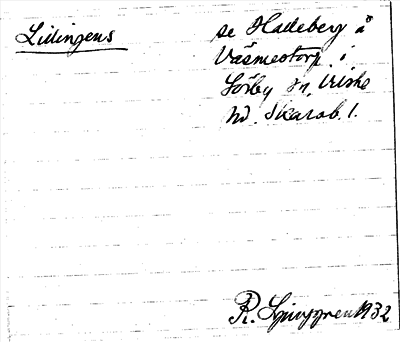 Lidingens
se Halleberg å
Väsmestorp i
Sörby sn, Vilske
hd. Skarab. l.
R. Ljunggren 1932